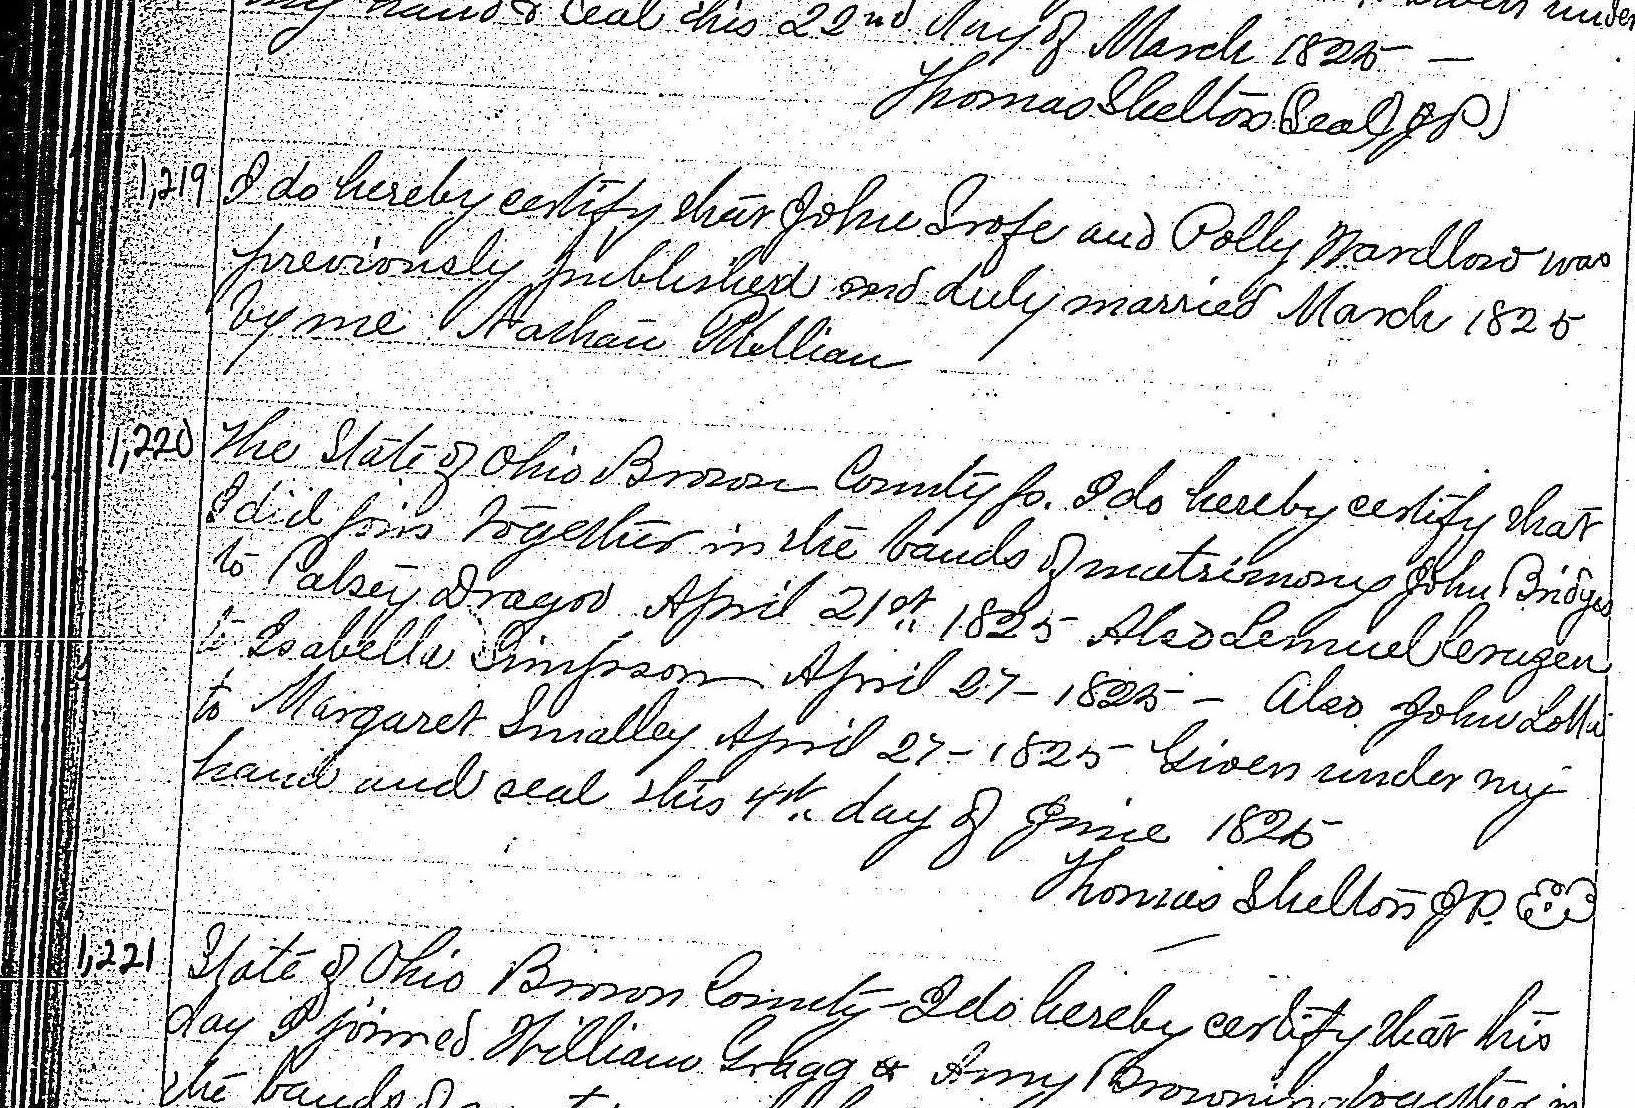 my hand & seal this 22nd day of March 1825 —
Thomas Shelton (Seal) J P)
1,219 I do hereby certify that John Trofe and Polly Wardlow was
previously published and duly married March 1825
by me Nathan
1,220 The State of Ohio Brown County ss. I do hereby certify that
I did join together in the bands of matrimony John Bridges
to Patsey Dragoo April 21st, 1825 Also Lemuel
to Isabella Simpson April 27 – 1825 – Also John
to Margaret Smalley April 27 – 1825 Given under my
hand and seal this 4th, day of June 1825
Thomas Shelton J P.
1,221 State of Ohio Brown County – I do hereby certify that this
day I joined William Gragg & Amy Browning together in
the bands of